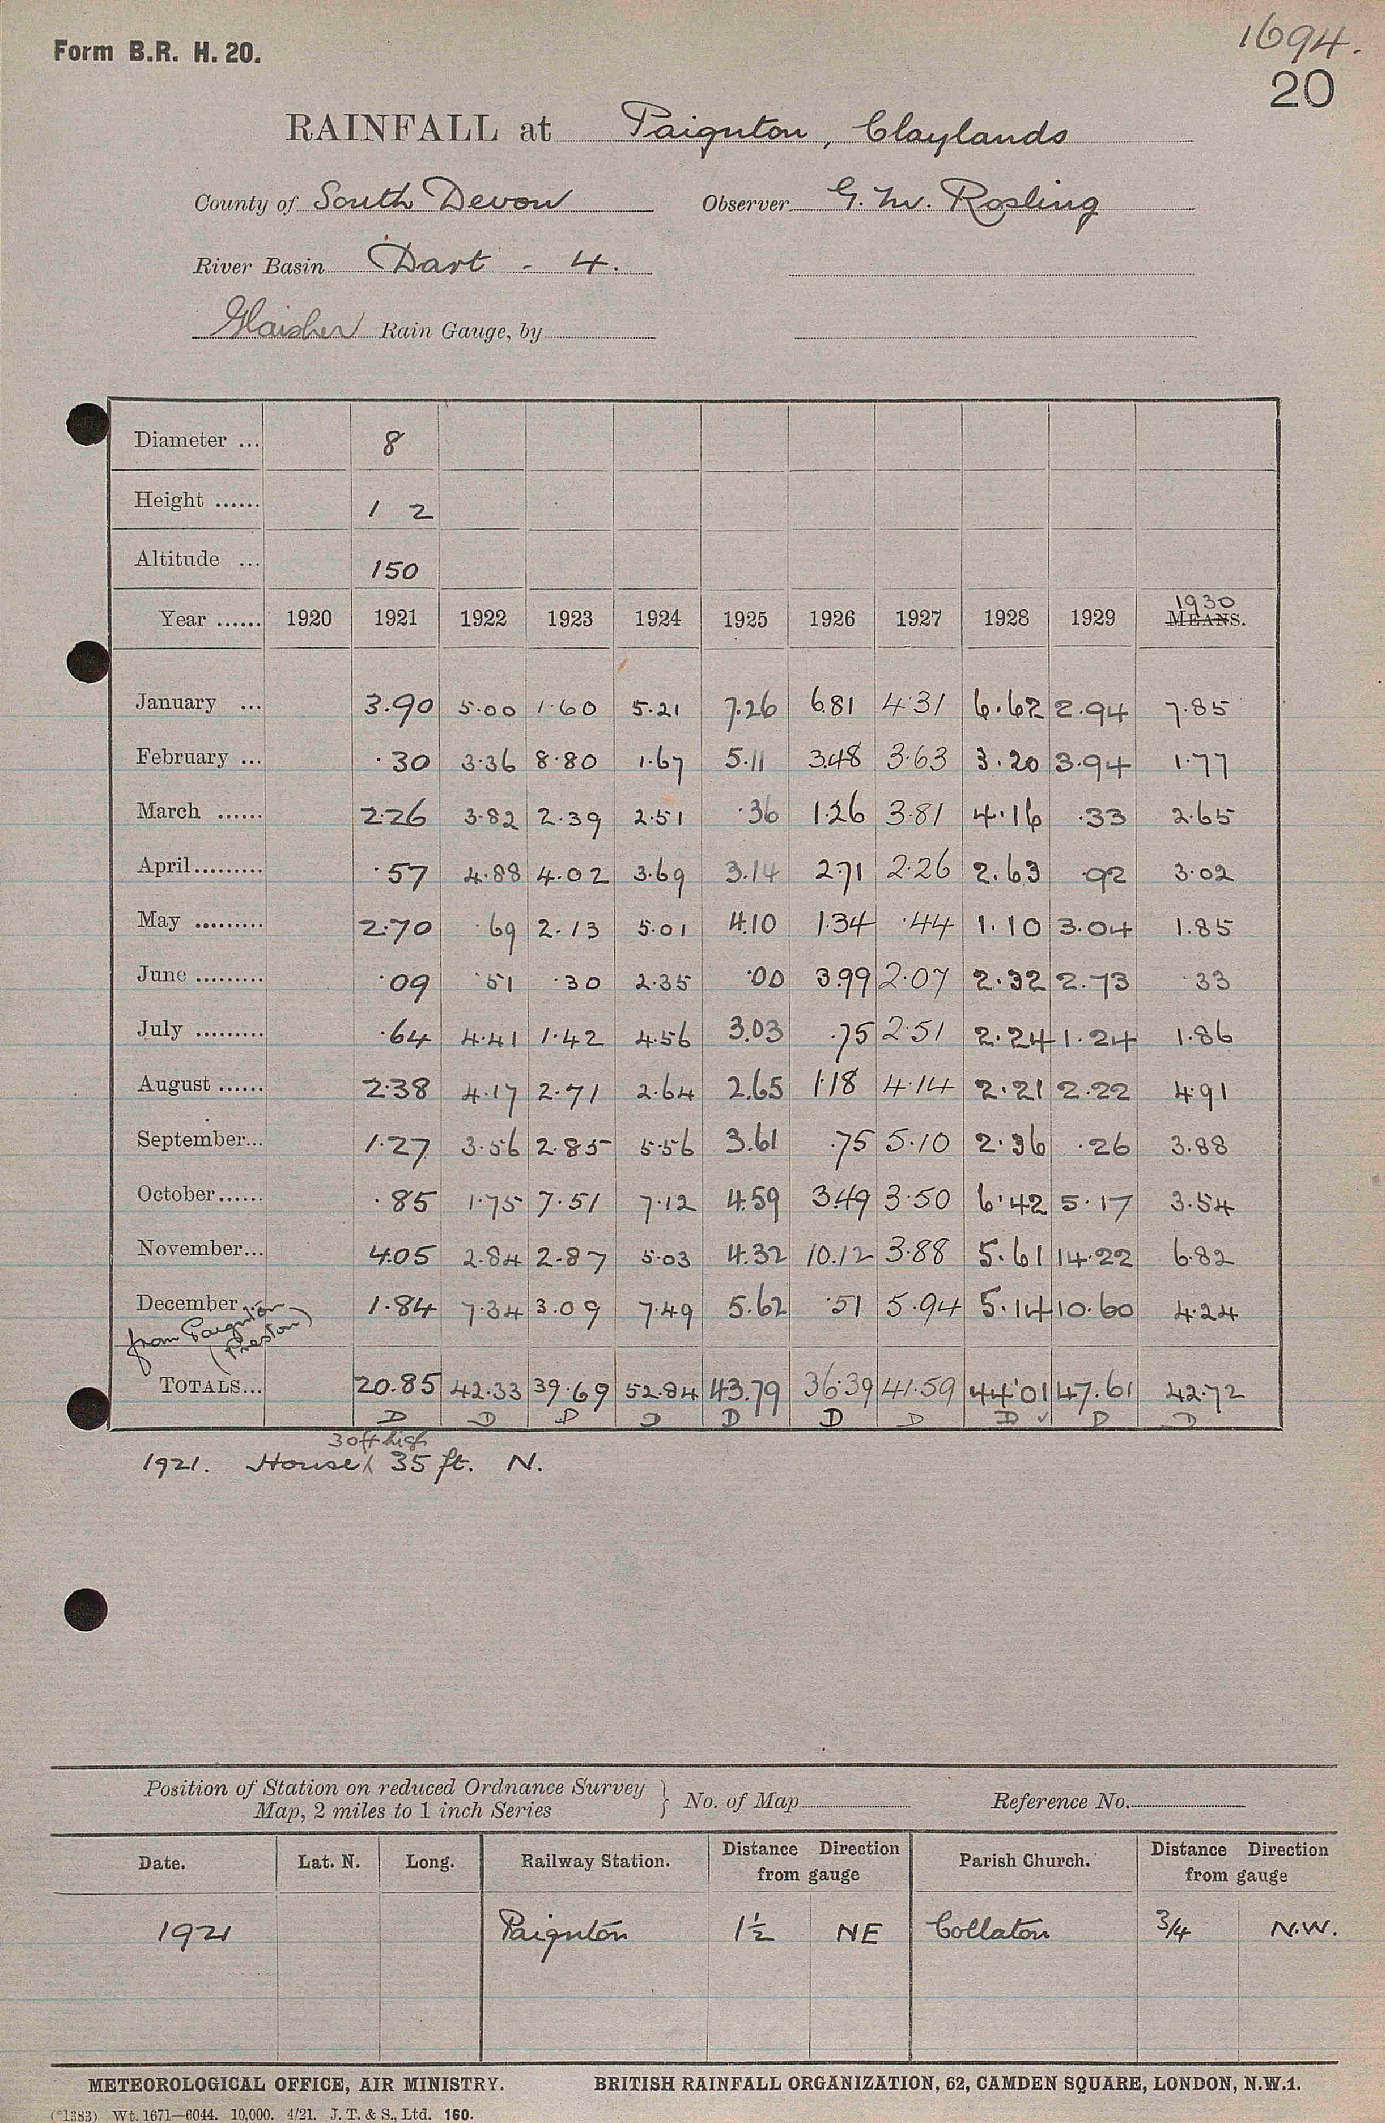 1694.
Form B.R. H. 20.
20
RAINFALL at Paignton, Claylands
County of South Devon Observer G. M. Rosling
River Basin Dart - 4.
Glaisher Rain Gauge, by
Diameter ... 8
Height ...... 1 2
Altitude ... 150
1930
Year ...... 1920 1921 1922 1923 1924 1925 1926 1927 1928 1929 MEANS.
January ... 3.90 5.00 1.60 5.21 7.26 6.81 4.31 6.62 2.94 7.85
February ... .30 3.36 8.80 1.67 5.11 3.48 3.63 3.20 3.94 1.77
March ...... 2.26 3.82 2.39 2.51 .36 1.26 3.81 4.16 .33 2.65
April......... .57 4.88 4.02 3.69 3.14 2.71 2.26 2.63 .92 3.02
May ......... 2.70 .69 2.13 5.01 4.10 1.34 .44 1.10 3.04 1.85
June ......... .09 .51 .30 2.35 .00 3.99 2.07 2.32 2.73 .33
July ......... .64 4.41 1.42 4.56 3.03 .75 2.51 2.24 1.24 1.86
August ...... 2.38 4.17 2.71 2.64 2.65 1.18 4.14 2.21 2.22 4.91
September... 1.27 3.56 2.85 5.56 3.61 .75 5.10 2.36 .26 3.88
October...... .85 1.75 7.51 7.12 4.59 3.49 3.50 6.42 5.17 3.54
November... 4.05 2.84 2.87 5.03 4.32 10.12 3.88 5.61 14.22 6.82
December 1.84 7.34 3.09 7.49 5.62 .51 5.94 5.14 10.60 4.24
from Paignton
(Preston)
TOTALS... 20.85 42.33 39.69 52.84 43.79 36.39 41.59 44.01 47.61 42.72
D D D D D D D D ✓ D D
30ft high
1921. House 35 ft. N.
Position of Station on reduced Ordnance Survey
Map, 2 miles to 1 inch Series } No. of Map Reference No.
Date. Lat. N. Long. Railway Station. Distance Direction from gauge Parish Church. Distance Direction from gauge
1921 Paignton 1½ NE Collaton 3/4 N.W.
METEOROLOGICAL OFFICE, AIR MINISTRY. BRITISH RAINFALL ORGANIZATION, 62, CAMDEN SQUARE, LONDON, N.W.1.
(*1383) Wt. 1671—6044. 10,000. 4/21. J. T. & S., Ltd. 160.